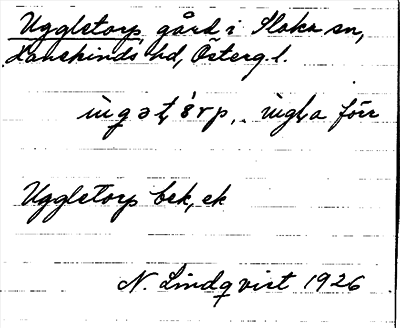 Uggletorp, gård, i Slaka sn,
Hanekinds hd, Östergl.
förr
Uggletorp bek, ek
N. Lindqvist 1926